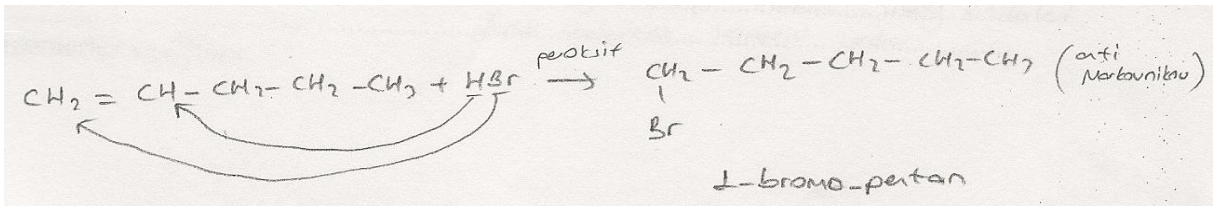 CH₂ = CH – CH₂ – CH₂ – CH₃ + HBr peroksit → CH₂ – CH₂ – CH₂ – CH₂ – CH₃ (anti Markovnikov)
Br
1-bromo-pentan